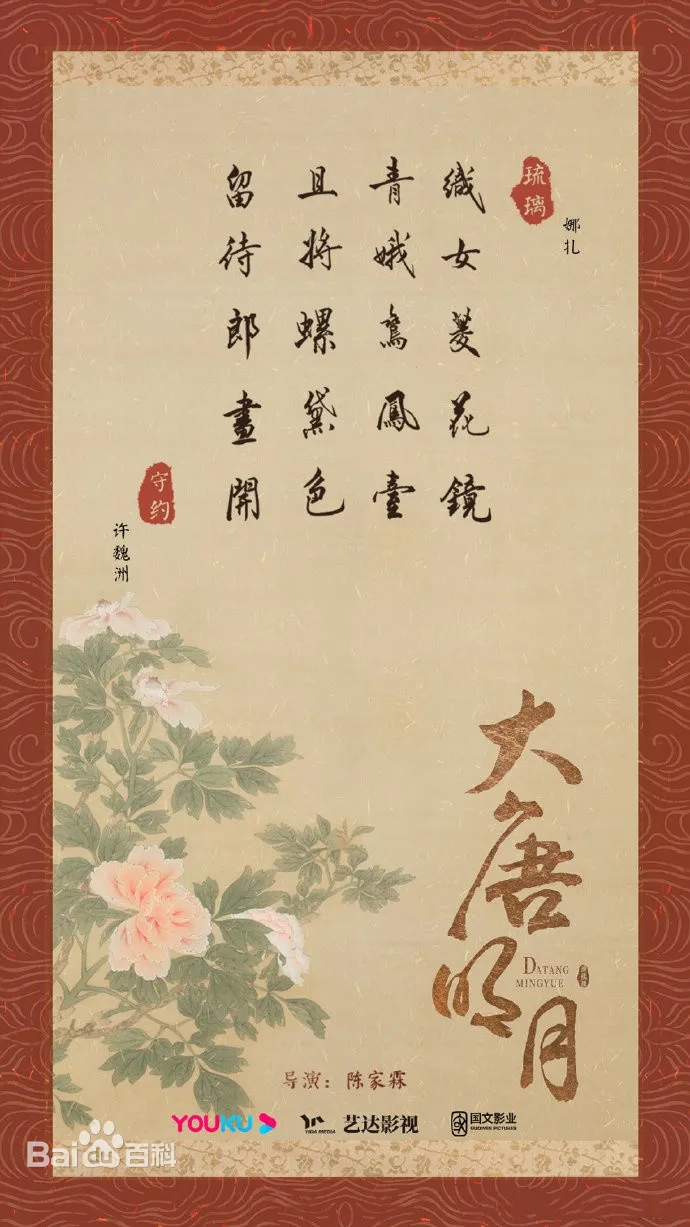 琉璃
娜扎
織女菱花鏡
青娥鸞鳳臺
且將螺黛色
留待郎畫開
守约
许魏洲
大唐明月
DATANG
MINGYUE
导演：陈家霖
YOUKU
YIDA MEDIA
艺达影视
国文影业
GUOWEN PICTURES
Baidu百科